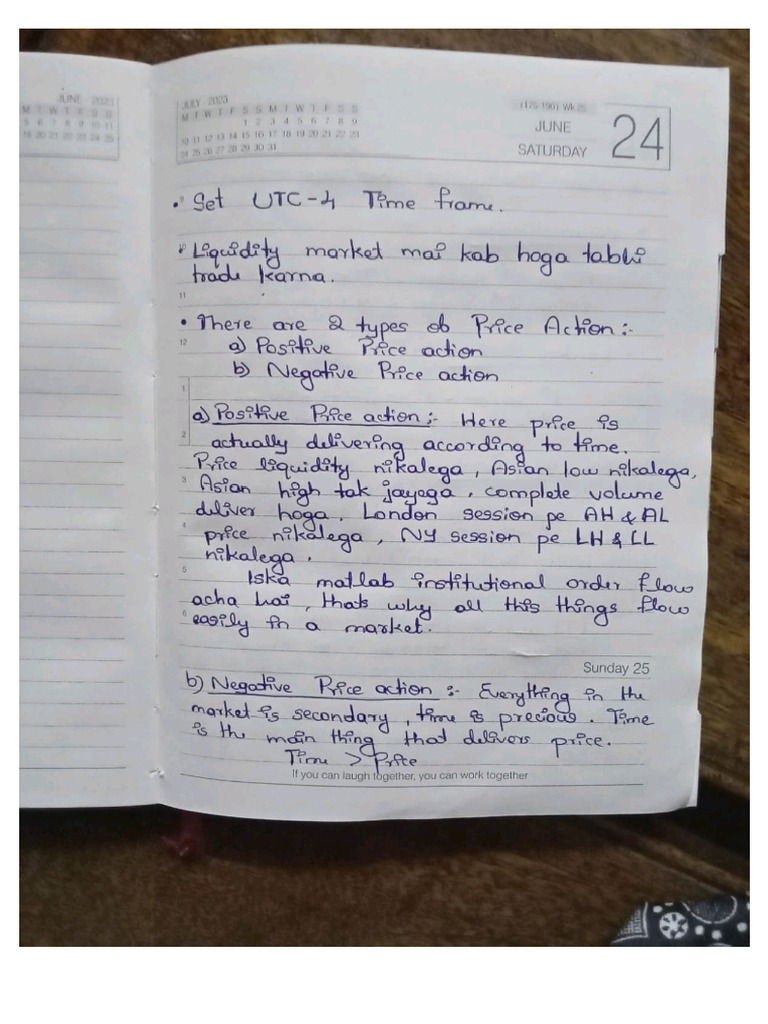 JUNE - 2023
M T W T F S S
5 6 7 8 9 10 11
19 20 21 22 23 24 25
JULY - 2023
M T W T F S S M T W T F S S
1 2 3 4 5 6 7 8 9
10 11 12 13 14 15 16 17 18 19 20 21 22 23
24 25 26 27 28 29 30 31
(175-190) Wk 25
JUNE
SATURDAY
24
• Set UTC-4 Time frame.
• Liquidity market mai kab hoga tabhi
trade karna.
11
• There are 2 types of Price Action :-
12
a) Positive Price action
b) Negative Price action
1
a) Positive Price action :- Here price is
2
actually delivering according to time.
Price liquidity nikalega, Asian low nikalega,
3
Asian high tak jayega, complete volume
deliver hoga, London session pe AH & AL
4
price nikalega, NY session pe LH & LL
nikalega.
5
Iska matlab institutional order flow
acha hai, thats why all this things flow
6
easily in a market.
Sunday 25
b) Negative Price action :- Everything in the
market is secondary, time is precious. Time
is the main thing that delivers price.
Time > Price
If you can laugh together, you can work together